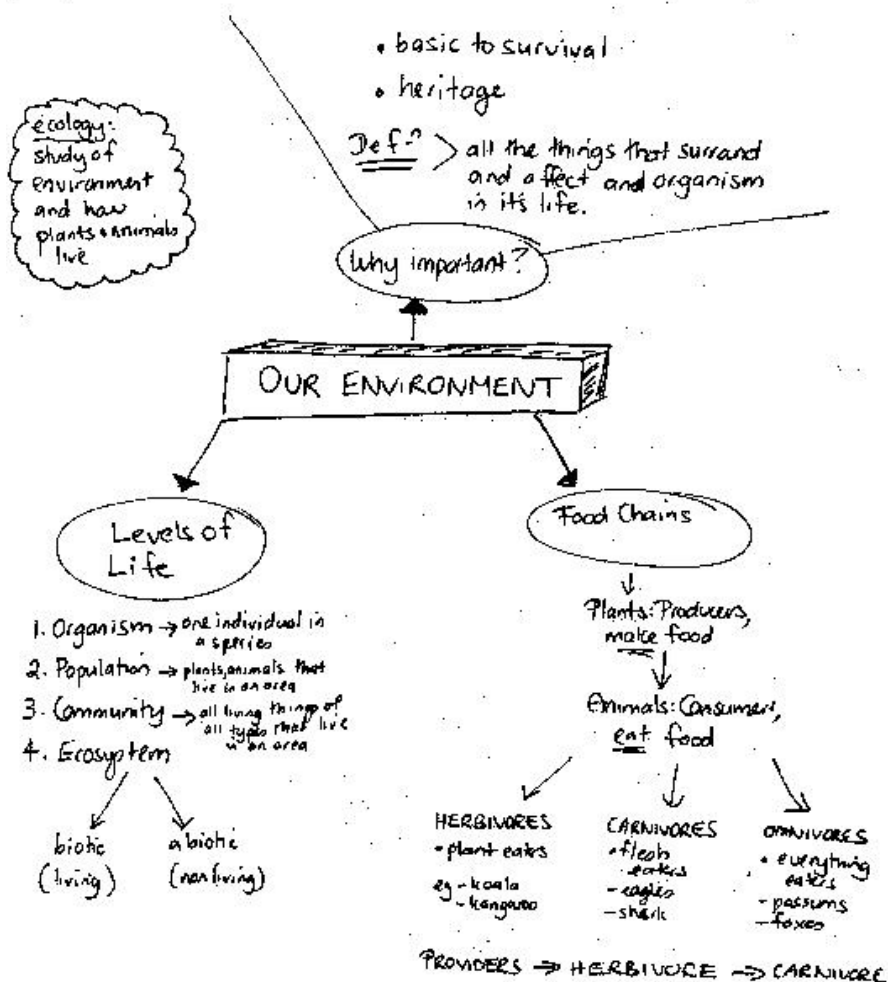 • basic to survival
• heritage
Def-n > all the things that surrand
and affect and organism
in it's life.
ecology:
study of
environment
and how
plants + animals
live
Why important?
OUR ENVIRONMENT
Levels of
Life
1. Organism → one individual in
a species
2. Population → plants, animals that
live in an area
3. Community → all living things of
all types that live
in an area
4. Ecosystem
biotic
(living)
abiotic
(nonliving)
Food Chains
Plants: Producers,
make food
Animals: Consumers,
eat food
HERBIVORES
• plant eates
eg - koala
- kangaroo
CARNIVORES
• flesh
eaters
- eagles
- shark
OMNIVORES
• everything
eaters
- possums
- foxes
PROVIDERS → HERBIVORE → CARNIVORE